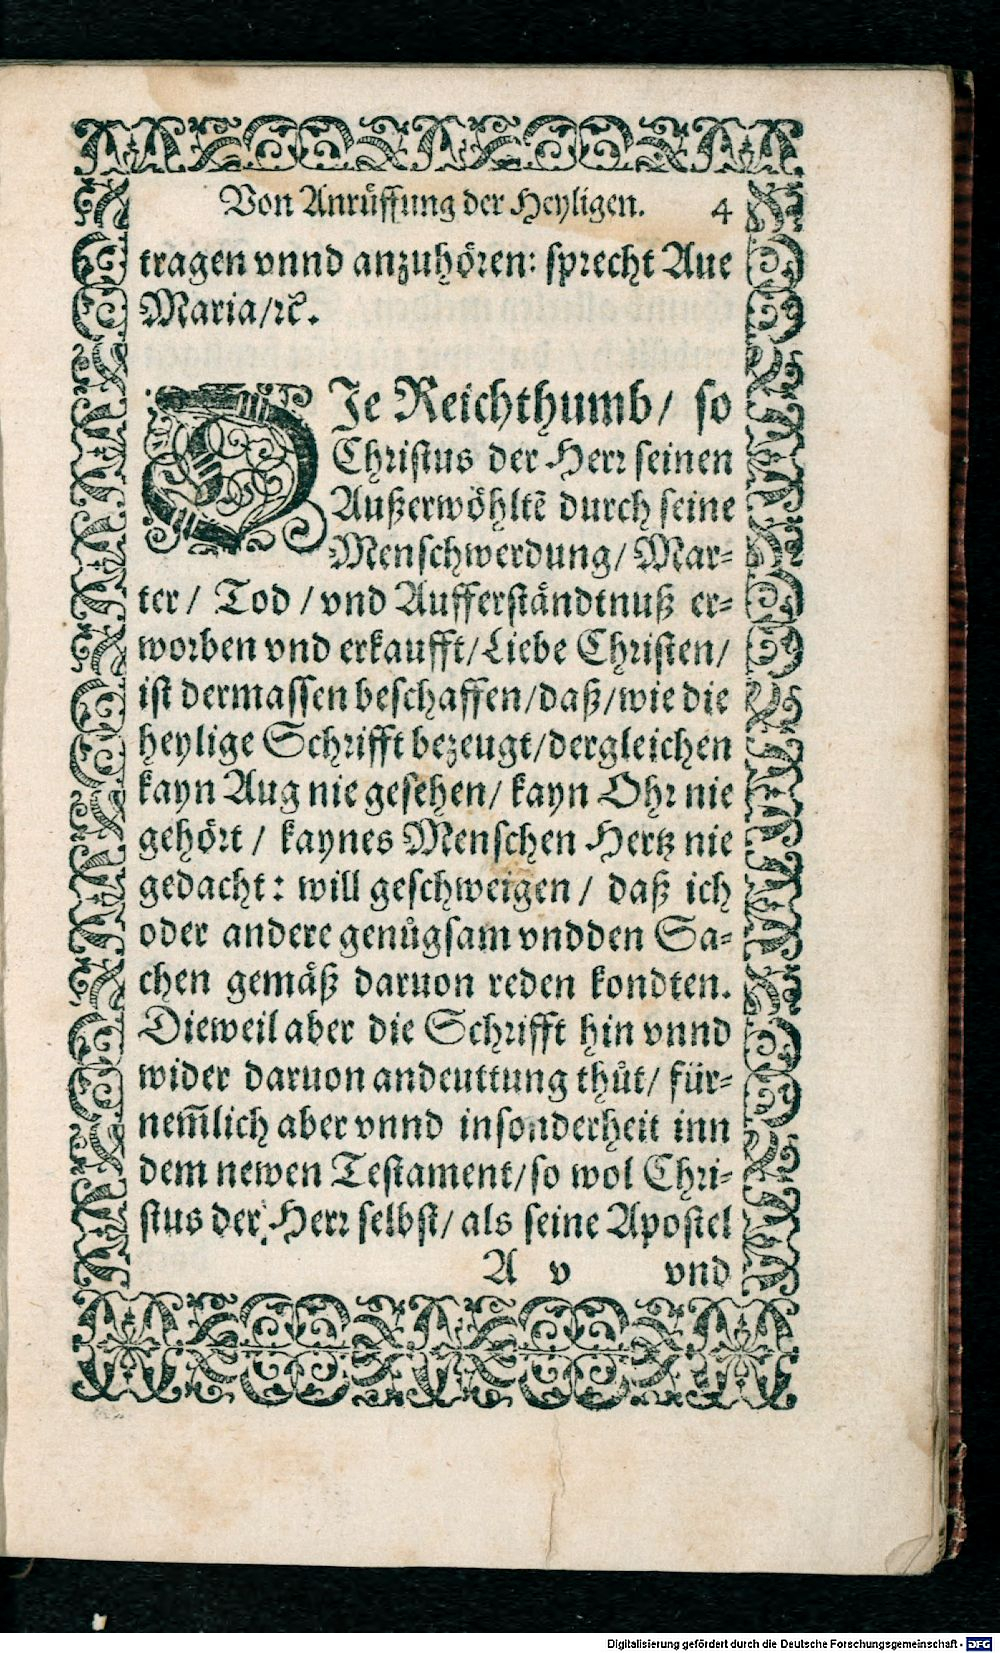 Von Anrůffung der Heyligen. 4
tragen vnnd anzuhören: sprecht Aue
Maria/ꝛc̃.
DIe Reichthumb/ so
Christus der Herr seinen
Außerwöhltẽ durch seine
Menschwerdung/ Mar-
ter/ Tod/ vnd Aufferständtnuß er-
worben vnd erkaufft/ Liebe Christen/
ist dermassen beschaffen/ daß/ wie die
heylige Schrifft bezeugt/ dergleichen
kayn Aug nie gesehen/ kayn Ohr nie
gehört/ kaynes Menschen Hertz nie
gedacht: will geschweigen/ daß ich
oder andere genůgsam vndden Sa-
chen gemäß daruon reden kondten.
Dieweil aber die Schrifft hin vnnd
wider daruon andeuttung thůt/ für-
nem̃lich aber vnnd insonderheit inn
dem newen Testament/ so wol Chri-
stus der Herr selbst/ als seine Apostel
A v vnd
Digitalisierung gefördert durch die Deutsche Forschungsgemeinschaft - DFG